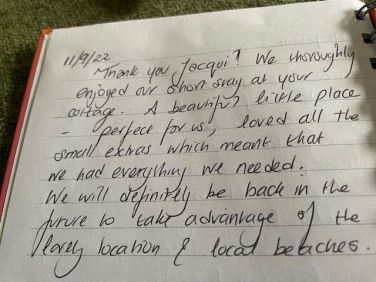 11/9/22
Thank you Jacqui! We thoroughly
enjoyed our short stay at your
cottage. A beautiful little place
- perfect for us, loved all the
small extras which meant that
we had everything we needed.
We will definitely be back in the
future to take advantage of the
lovely location & local beaches.